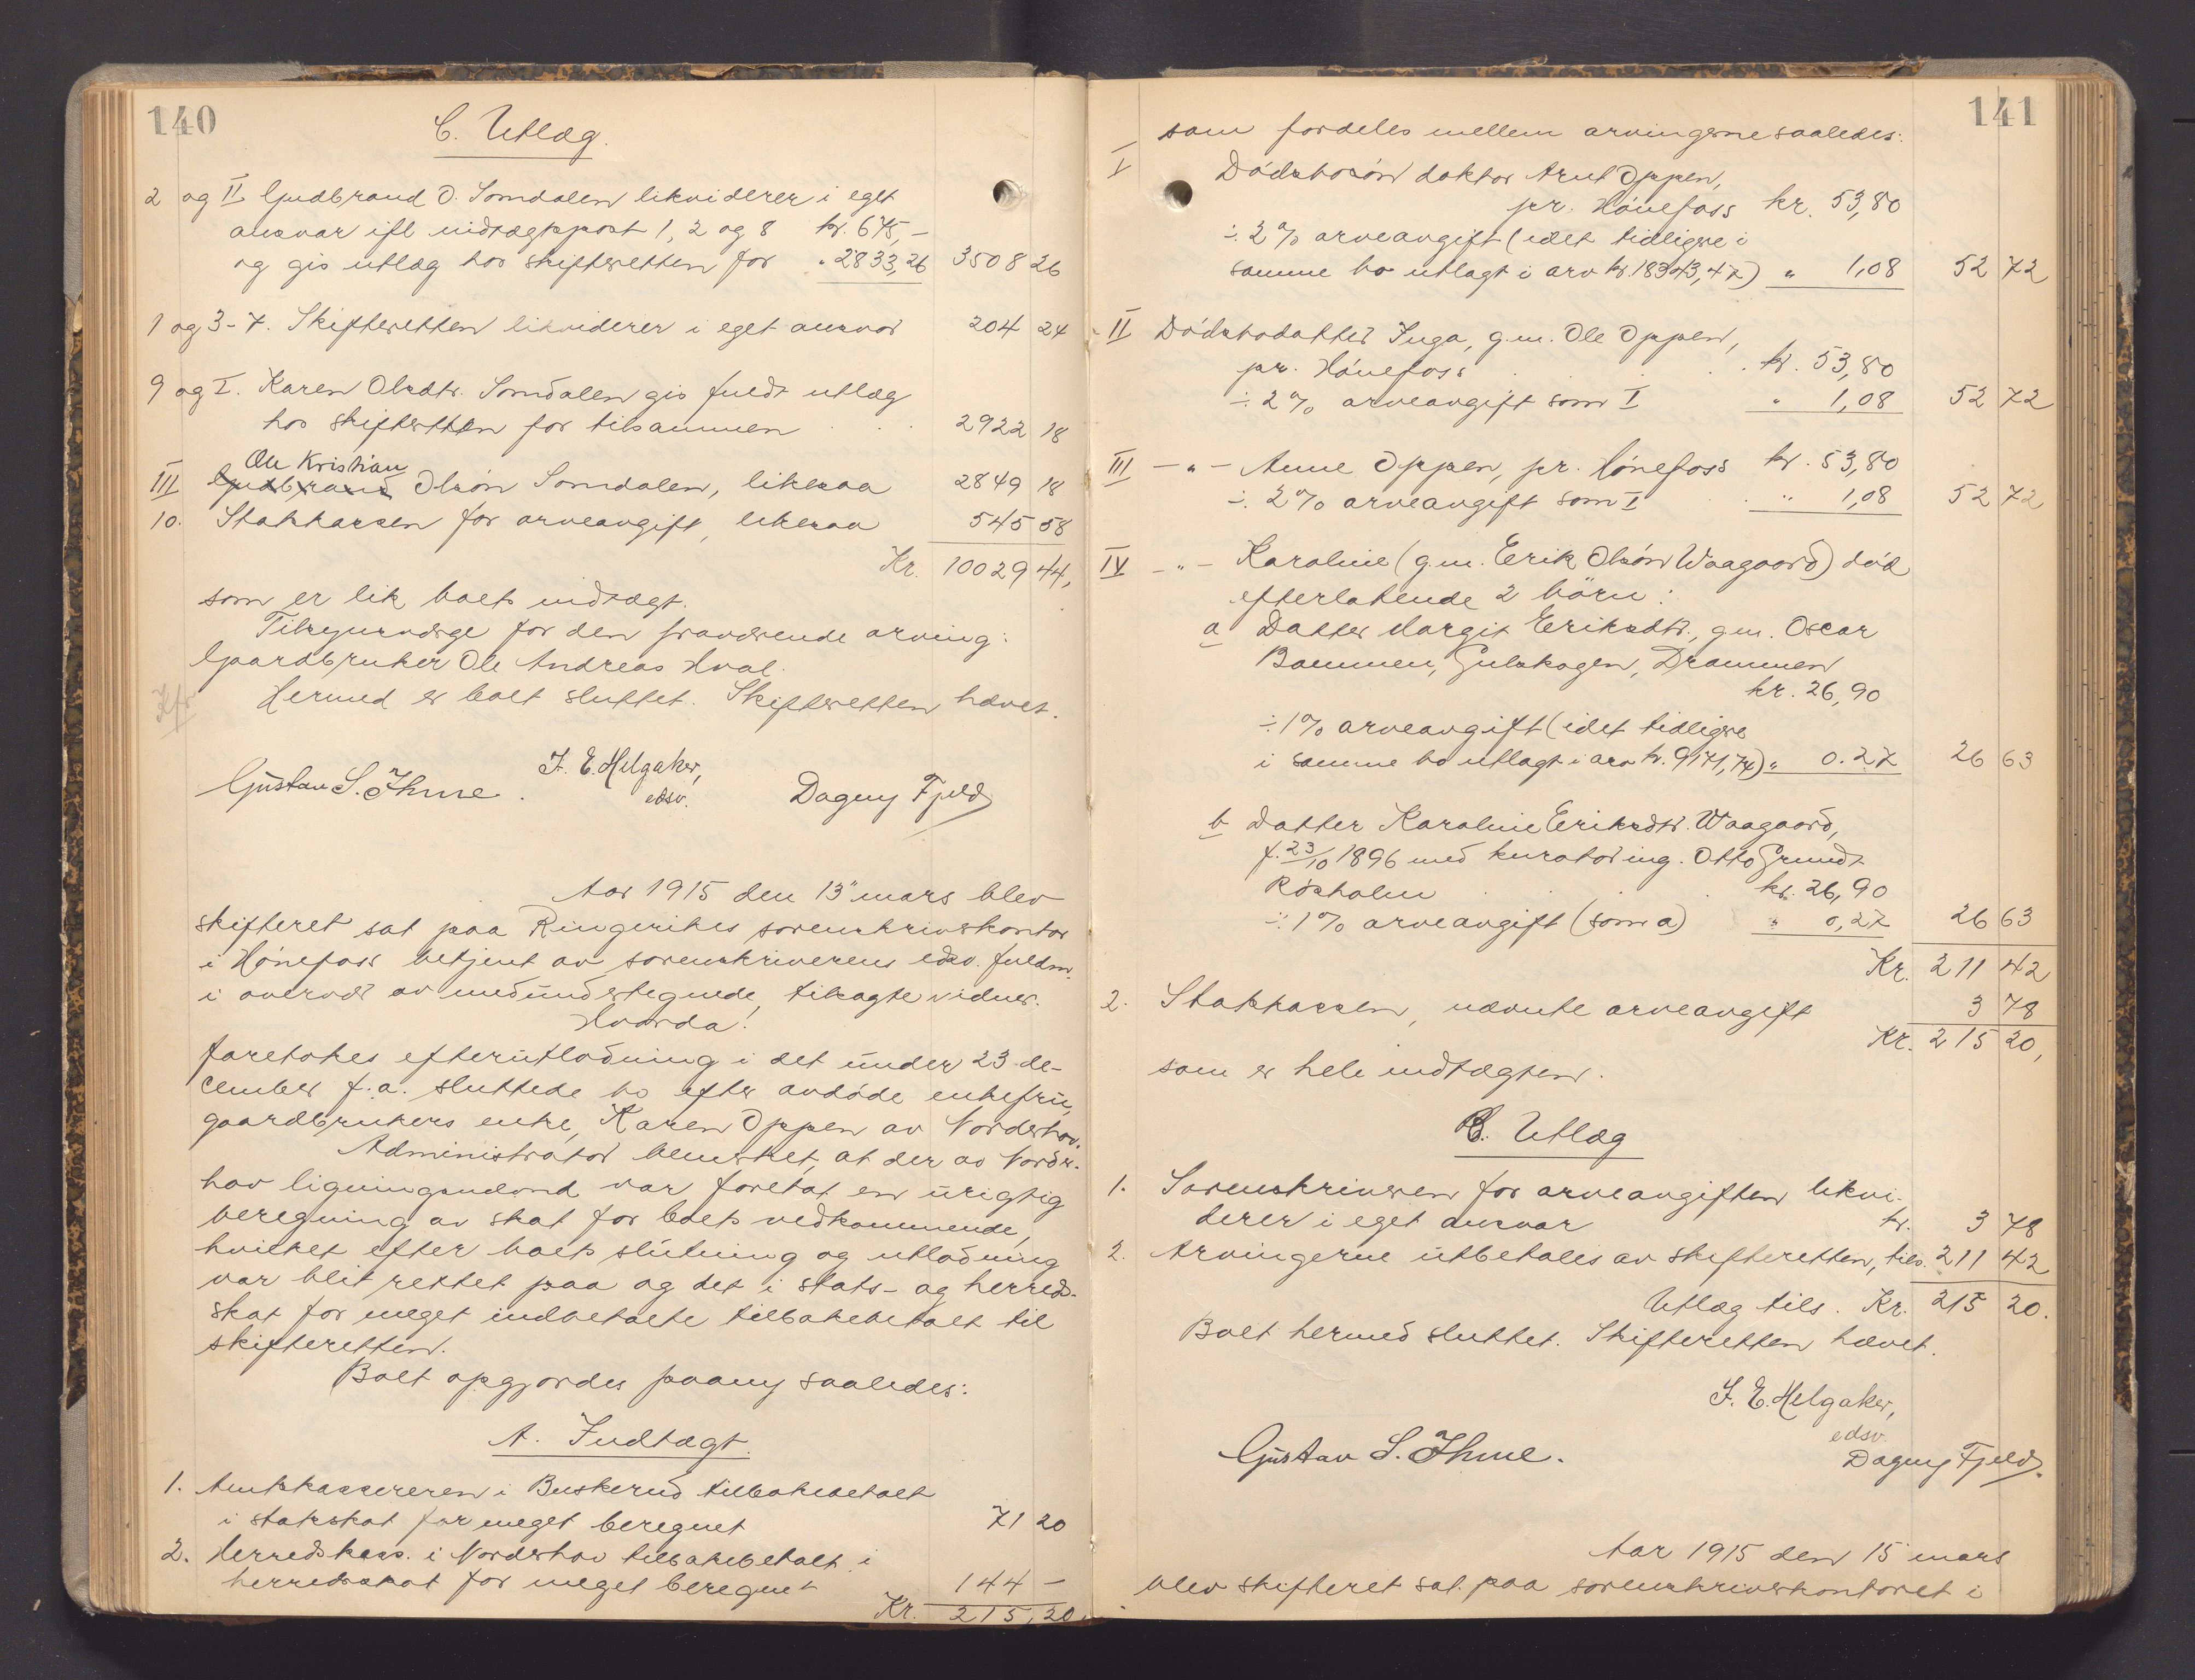 140
C. Utlæg.
2 og II Gudbrand O. Somdalen likviderer i eget
ansvar ifl indtægtspost 1, 2 og 8 kr. 675,-
og gis utlæg hos skifteretten for " 2833,26 3508 26
1 og 3-7. Skifteretten likviderer i eget ansvar 204 24
9 og I. Karen Olsdtr. Somdalen gis fuldt utlæg
hos skifteretten for tilsammen . . . 2922 18
Ole Kristian
III Gudbrand Olsøn Somdalen, likesaa 2849 18
10. Statskassen for arveavgift, likesaa 545 58
Kr. 10029 44,
som er lik boets indtægt.
Tilsynsværge for den fraværende arving:
Gaardbruker Ole Andreas Hval.
Kfr
Hermed er boet sluttet. Skifteretten hævet.
F. E. Helgaker,
edsv.
Gustav S. Ihme.
Dagny Fjeld
Aar 1915 den 13" mars blev
skifteret sat paa Ringerikes sorenskriverkontor
i Hønefoss betjent av sorenskriverens edsv. fuldm.
i overvær av medundertegnede, tilsagte vidner.
Hvorda:
foretokes efterutlodning i det under 23 de-
cember f.a. sluttede bo efter avdøde enkefru,
gaardbrukers enke, Karen Oppen av Norderhov.
Administrator bemerket, at der av Norder-
hov ligningsnævnd var foretat en urigtig
beregning av skat for boets vedkommende,
hvilket efter boets slutning og utlodning
var blit rettet paa og det i stats- og herreds-
skat for meget indbetalte tilbakebetalt til
skifteretten.
Boet opgjordes paany saaledes:
A. Indtægt.
1. Amtskassereren i Buskerud tilbakebetalt
i statsskat for meget beregnet 71 20
2. Herredskass. i Norderhov tilbakebetalt i
herredsskat for meget beregnet 144 -
Kr. 215,20.
141
som fordeles mellem arvingerne saaledes:
I Dødsbosøn doktor Arnt Oppen,
pr. Hønefoss kr. 53,80
÷ 2% arveavgift (idet tidligere i
samme bo utlagt i arv kr. 18343,47) " 1,08 52 72
II Dødsbodatter Inga, g.m. Ole Oppen,
pr. Hønefoss . . . kr. 53,80
÷ 2% arveavgift som I " 1,08 52 72
III -"- Anne Oppen, pr. Hønefoss kr. 53,80
÷ 2% arveavgift som I " 1,08 52 72
IV -"- Karoline (g.m. Erik Olsøn Waagaard) død
efterlatende 2 børn:
a Datter Margit Eriksdtr., g.m. Oscar
Bommen, Gulskogen, Drammen
kr. 26,90
÷ 1% arveavgift (idet tidligere
i samme bo utlagt i arv kr. 9171,74) " 0.27 26 63
b Datter Karoline Eriksdtr. Waagaard,
f. 23/10 1896 med kurator ing. Otto Grundt
Roxholm . . . kr. 26,90
÷ 1% arveavgift (som a) " 0,27 26 63
Kr. 211 42
2. Statskassen, nævnte arveavgift 3 78
Kr. 215 20,
som er hele indtægten.
B. Utlæg
1. Sorenskriveren for arveavgiften likvi-
derer i eget ansvar kr. 3 78
2. Arvingerne utbetales av skifteretten, tils. 211 42
Utlæg tils. Kr. 215 20.
Boet hermed sluttet. Skifteretten hævet.
F. E. Helgaker,
edsv.
Gustav S. Ihme.
Dagny Fjeld.
Aar 1915 den 15 mars
blev skifteret sat paa sorenskriverkontoret i